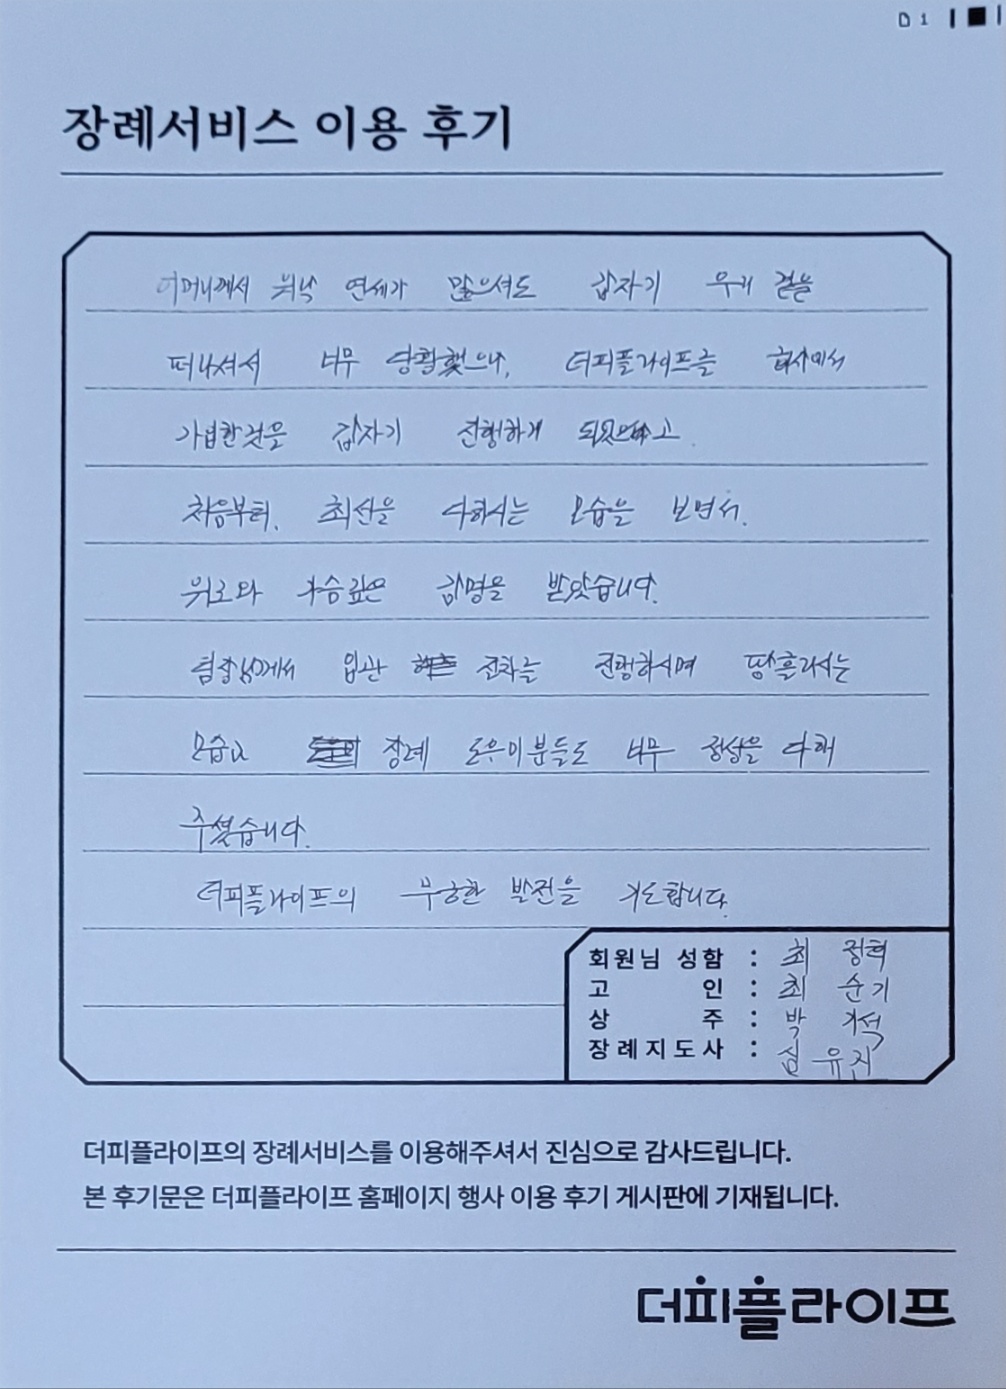 D 1
장례서비스 이용 후기
어머니께서 워낙 연세가 많으셔도 갑자기 우리 곁을
떠나셔서 너무 당황했으나, 더피플라이프를 회사에서
가입한것을 갑자기 진행하게 되었고.
처음부터. 최선을 다하시는 모습을 보면서.
위로와 가슴깊은 감명을 받았습니다.
팀장님께서 입관 절차를 진행하시며 땀흘리시는
모습과 장례 도우미분들도 너무 정성을 다해
주셨습니다.
더피플라이프의 무궁한 발전을 기도합니다.
회원님 성함 : 최 정혁
고 인 : 최 순기
상 주 : 박 기석
장례지도사 : 심 유진
더피플라이프의 장례서비스를 이용해주셔서 진심으로 감사드립니다.
본 후기문은 더피플라이프 홈페이지 행사 이용 후기 게시판에 기재됩니다.
더피플라이프